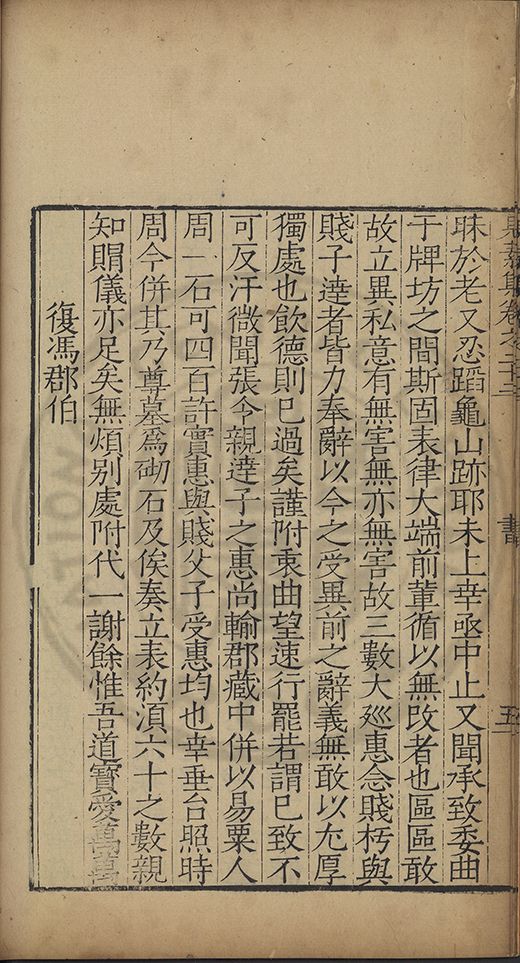 書
昧於老又忍蹈龜山跡耶未上幸亟中止又聞承致委曲
于牌坊之間斯固表律大端前輩循以無改者也區區敢
故立異私意有無害無亦無害故三數大廵惠念賤朽與
賤子達者皆力奉辭以今之受異前之辭義無敢以尢厚
獨處也飲德則已過矣謹附衷曲望速行罷若謂已致不
可反汗微聞張令親達子之惠尚輸郡藏中併以易粟人
周一石可四百許實惠與賤父子受惠均也幸垂台照時
周今併其乃尊墓爲砌石及俟奏立表約湏六十之數親
知賵儀亦足矣無煩別處附代一謝餘惟吾道寶愛萬萬
復馮郡伯